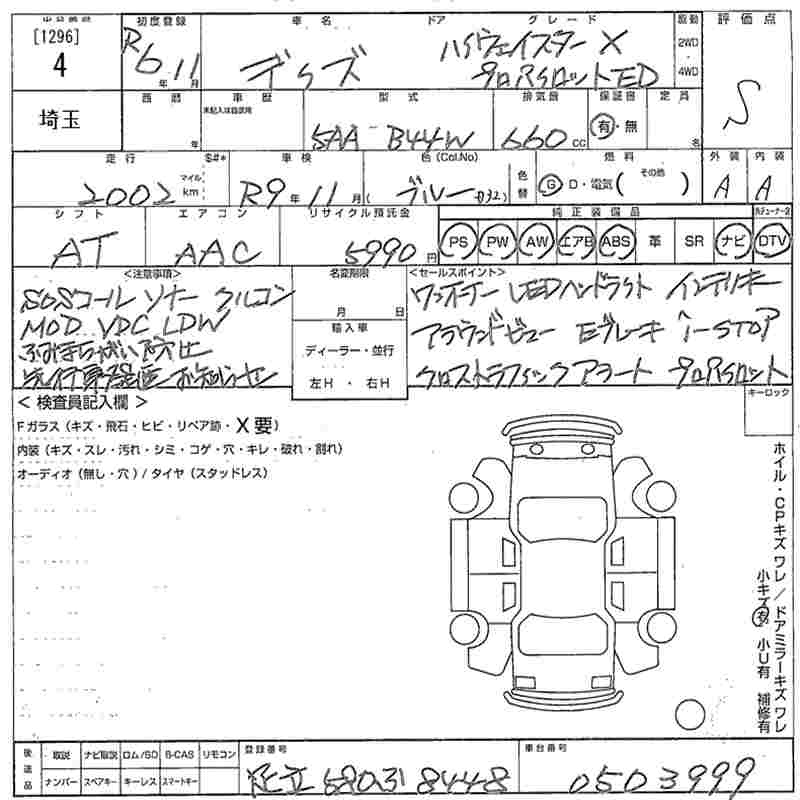 [1296]
4
埼玉
初度登録
R6年11月
車名
デイズ
ドア
グレード
ハイウェイスター X
プロパイロットED
駆動
2WD
4WD
評価点
S
西暦
年
車歴
未記入は自家用
型式
5AA-B44W
排気量
660cc
保証書
有・無
定員
名
走行
2002
マイル
km
S#*
車検
R9年11月
色(Col.No)
ブルー
色替
燃料
G D・電気( その他 )
外装
A
内装
A
シフト
AT
エアコン
AAC
リサイクル預託金
5990円
純正装備品
PS PW AW エアB ABS 革 SR ナビ DTV
<注意事項>
SOSコール ソナー クルコン
MOD VDC LDW
ふみまちがい防止
先行車発進お知らせ
名変期限
月 日
輸入車
ディーラー・並行
左H ・ 右H
<セールスポイント>
ワンオーナー LEDヘッドライト インテリキー
アラウンドビュー Eブレーキ i-STOP
クロストラフィックアラート プロパイロット
キーロック
< 検査員記入欄 >
Fガラス(キズ・飛石・ヒビ・リペア跡・X要)
内装(キズ・スレ・汚れ・シミ・コゲ・穴・キレ・破れ・割れ)
オーディオ(無し・穴)/タイヤ(スタッドレス)
ホイル・CPキズ ワレ/ドアミラーキズ ワレ
小キズ有 小U有 補修有
後送品
取説 ナビ取説 ロム/SD B-CAS リモコン
ナンバー スペアキー キーレス スマートキー
登録番号
足立580る8448
車台番号
0503999